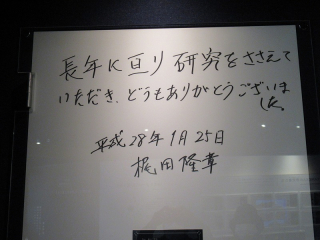 長年に亘り研究をささえて
いただき、どうもありがとうございました。
平成28年1月25日
梶田隆章